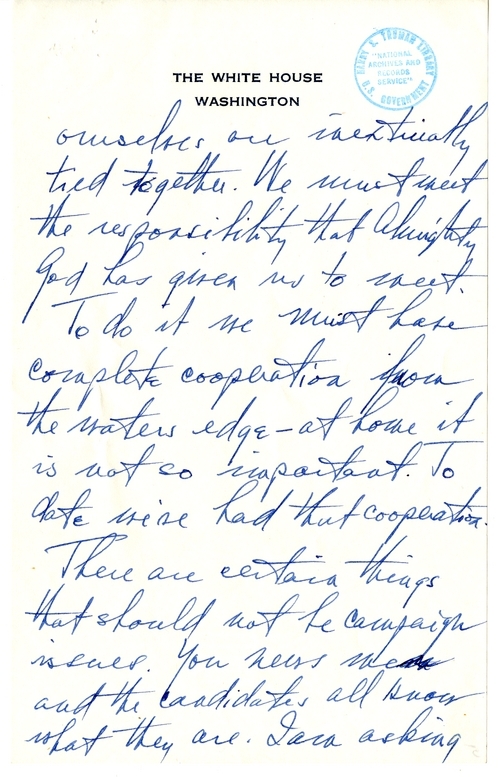 THE WHITE HOUSE
WASHINGTON
HARRY S. TRUMAN LIBRARY
"NATIONAL
ARCHIVES AND
RECORDS
SERVICE"
U.S. GOVERNMENT
ourselves are inextricably
tied together. We must meet
the responsibility that Almighty
God has given us to meet.
To do it we must have
complete cooperation from
the waters edge – at home it
is not so important. To
date we've had that cooperation.
There are certain things
that should not be campaign
issues. You news men
and the candidates all know
what they are. I am asking